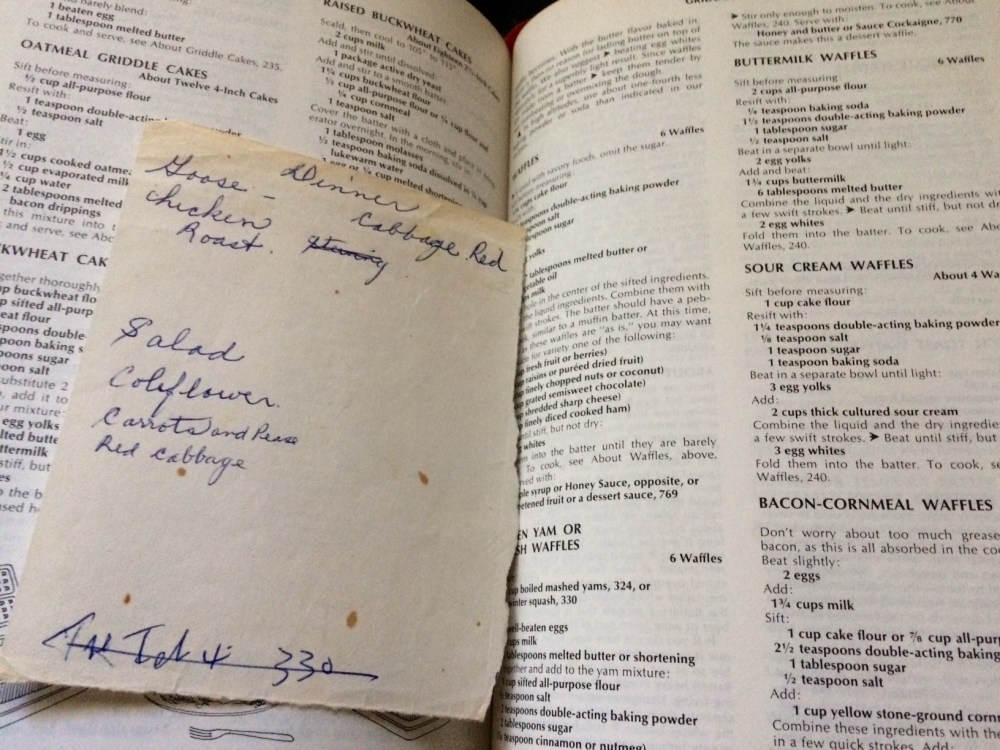 barely blend:
1 beaten egg
1 tablespoon melted butter
To cook and serve, see About Griddle Cakes, 235.
OATMEAL GRIDDLE CAKES
About Twelve 4-Inch Cakes
Sift before measuring:
½ cup all-purpose flour
Resift with:
1 teaspoon double-acting
½ teaspoon salt
Beat:
1 egg
Stir in:
1½ cups cooked oatmeal
½ cup evaporated milk
¼ cup water
2 tablespoons melted
bacon drippings
this mixture into
and serve, see
KWHEAT CAK
gether thoroughly
p buckwheat flo
p sifted all-purp
eat flour
spoons double
oon baking s
poons sugar
oon salt
ubstitute 2
, add it to
ur mixture
egg yolks
lted butte
ttermilk
stiff, but
the b
RAISED BUCKWHEAT CAKES
Scald, then cool to 105° to 115°
2 cups milk
Add and stir until dissolved:
1 package active dry yeast
Add and stir to a smooth batter:
1¾ cups buckwheat flour
½ cup all-purpose flour or ¼ cup flour and
¼ cup cornmeal
1 teaspoon salt
Cover the batter with a cloth and place
erator overnight. In the morning, stir in:
1 tablespoon molasses
½ teaspoon baking soda dissolved in ¼ cup
lukewarm water
1 egg or ¼ cup melted shortening
Goose - Dinner
chicken Cabbage Red
Roast.
Salad
Coliflower.
Carrots and Pease
Red Cabbage
330
With the butter flavor baked in,
for ladling butter on top of
beating egg whites
superbly light result. Since waffles
keep them tender by
overmixing the dough.
use about one-fourth less
powder or soda than indicated in our
6 Waffles
AFFLES
with savory foods, omit the sugar.
measuring:
cake flour
spoons double-acting baking powder
poon salt
spoon sugar
yolks
tablespoons melted butter or
table oil
milk
hole in the center of the sifted ingredients.
liquid ingredients. Combine them with
strokes. The batter should have a peb-
similar to a muffin batter. At this time,
these waffles are "as is," you may want
for variety one of the following:
fresh fruit or berries)
raisins or puréed dried fruit)
finely chopped nuts or coconut)
grated semisweet chocolate)
shredded sharp cheese)
finely diced cooked ham)
stiff, but not dry:
whites
into the batter until they are barely
To cook, see About Waffles, above.
ved with:
ple syrup or Honey Sauce, opposite, or
etened fruit or a dessert sauce, 769
EN YAM OR
SH WAFFLES
6 Waffles
up boiled mashed yams, 324, or
winter squash, 330
ell-beaten eggs
ups milk
tablespoons melted butter or shortening
ether and add to the yam mixture:
cup sifted all-purpose flour
teaspoon salt
teaspoons double-acting baking powder
tablespoons sugar
teaspoon cinnamon or nutmeg)
► Stir only enough to moisten. To cook, see About
Waffles, 240. Serve with:
Honey and butter or Sauce Cockaigne, 770
The sauce makes this a dessert waffle.
BUTTERMILK WAFFLES
6 Waffles
Sift before measuring:
2 cups all-purpose flour
Resift with:
¼ teaspoon baking soda
1½ teaspoons double-acting baking powder
1 tablespoon sugar
½ teaspoon salt
Beat in a separate bowl until light:
2 egg yolks
Add and beat:
1¾ cups buttermilk
6 tablespoons melted butter
Combine the liquid and the dry ingredients wi
a few swift strokes. ► Beat until stiff, but not dr
2 egg whites
Fold them into the batter. To cook, see Abo
Waffles, 240.
SOUR CREAM WAFFLES
About 4 Wa
Sift before measuring:
1 cup cake flour
Resift with:
1¼ teaspoons double-acting baking powder
⅛ teaspoon salt
1 teaspoon sugar
1 teaspoon baking soda
Beat in a separate bowl until light:
3 egg yolks
Add:
2 cups thick cultured sour cream
Combine the liquid and the dry ingredie
a few swift strokes. ► Beat until stiff, but
3 egg whites
Fold them into the batter. To cook, s
Waffles, 240.
BACON-CORNMEAL WAFFLES
Don't worry about too much grease
bacon, as this is all absorbed in the co
Beat slightly:
2 eggs
Add:
1¾ cups milk
Sift:
1 cup cake flour or ⅞ cup all-pur
2½ teaspoons double-acting baking
1 tablespoon sugar
½ teaspoon salt
Add:
1 cup yellow stone-ground corn
Combine these ingredients with th
in a few quick strokes. Add: